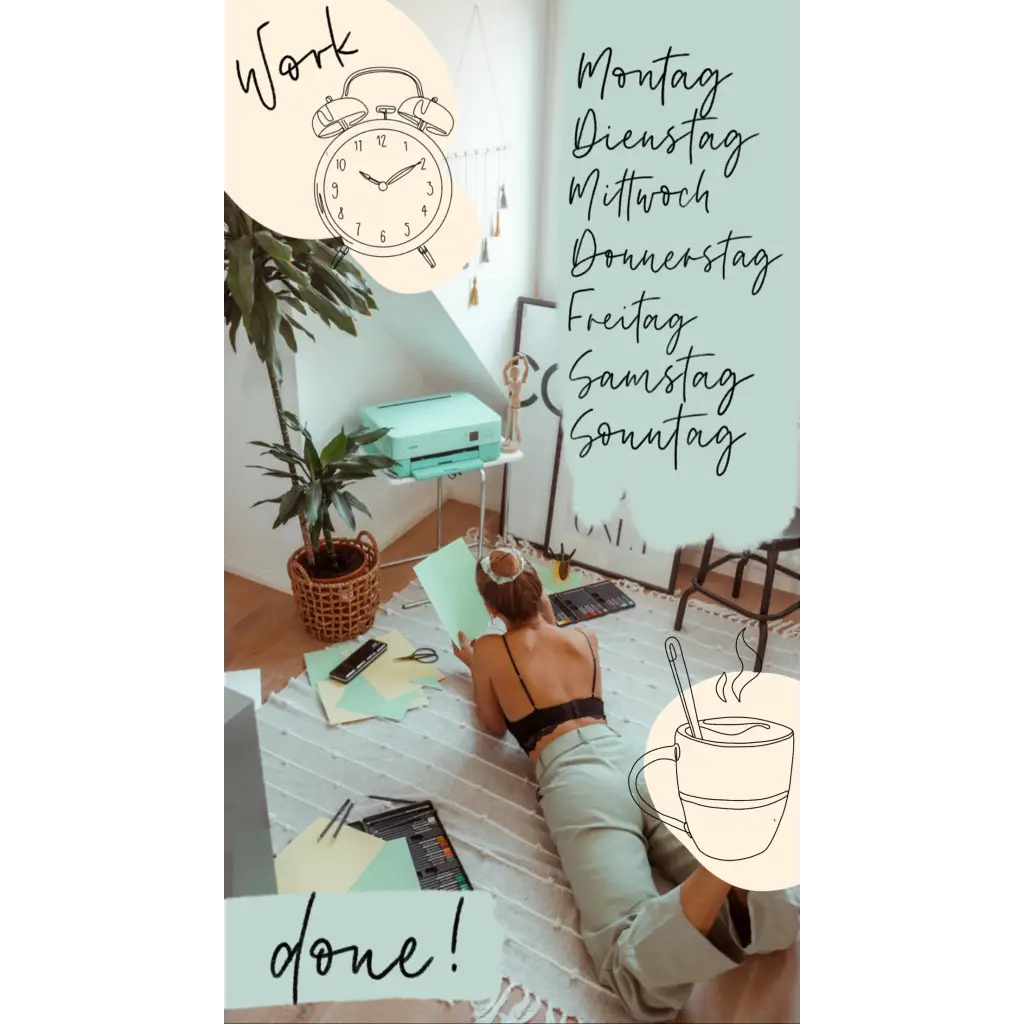 Work
11 12 1
10 2
9 3
8 4
7 6 5
Montag
Dienstag
Mittwoch
Donnerstag
Freitag
Samstag
Sonntag
done!